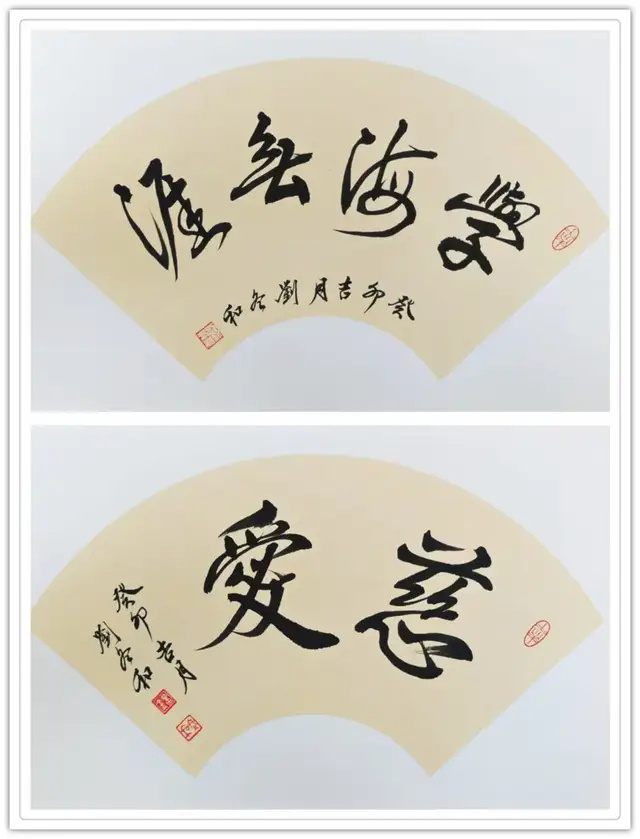 學海無涯
癸卯吉月劉冬和
慈愛
癸卯吉月
劉冬和